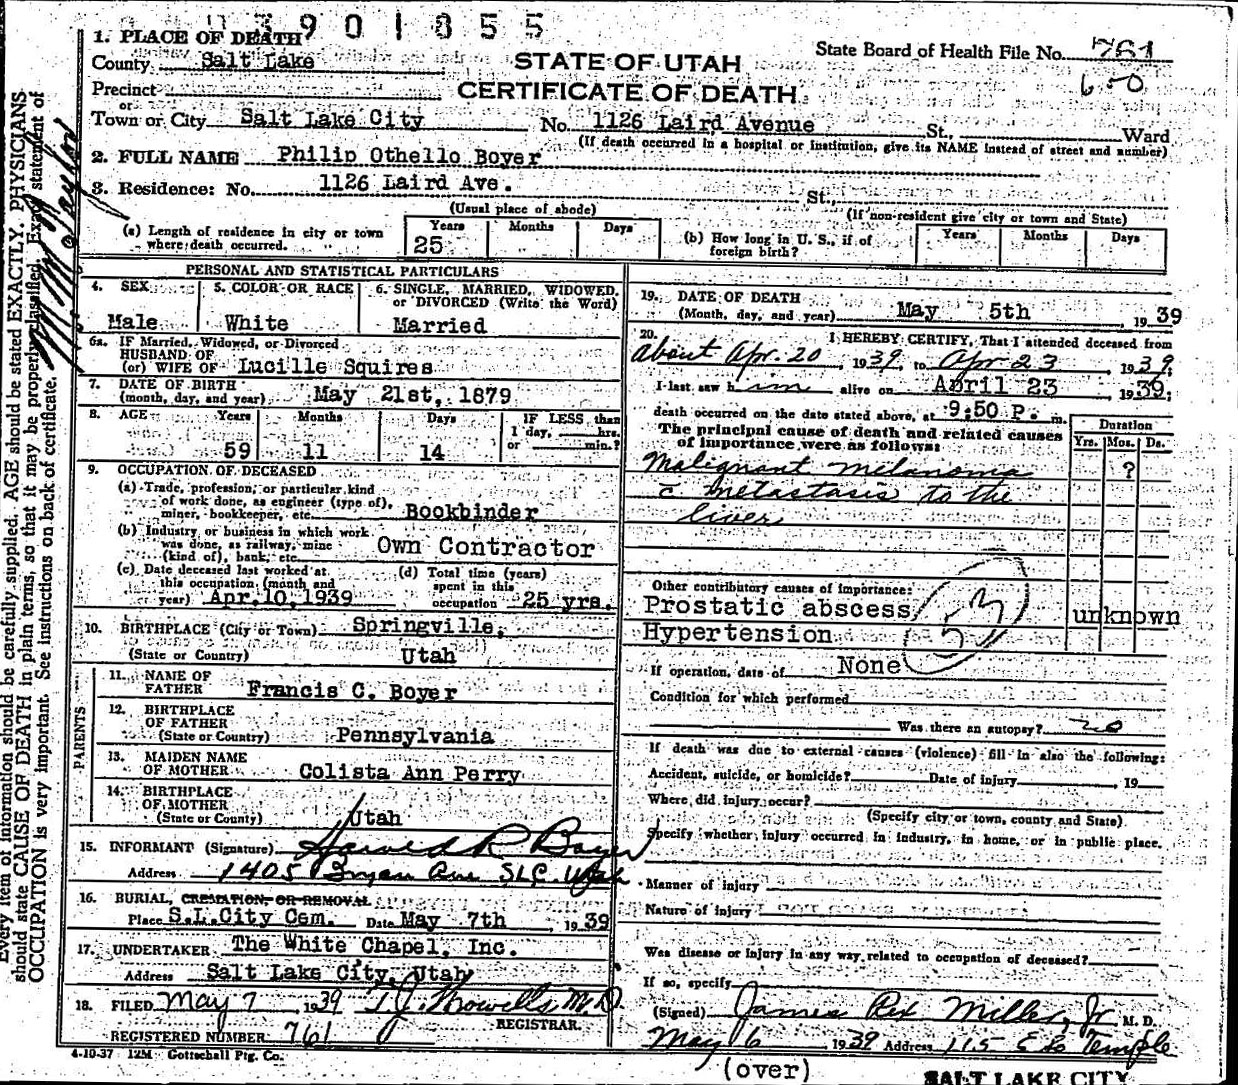 3901855
1. PLACE OF DEATH
County Salt Lake
STATE OF UTAH
State Board of Health File No. 761
650
Precinct
CERTIFICATE OF DEATH
or
Town or City Salt Lake City No. 1126 Laird Avenue St., Ward
(If death occurred in a hospital or institution, give its NAME instead of street and number)
2. FULL NAME Philip Othello Boyer
3. Residence: No. 1126 Laird Ave. St.,
(Usual place of abode) (If non-resident give city or town and State)
(a) Length of residence in city or town where death occurred. Years 25 Months Days
(b) How long in U. S., if of foreign birth? Years Months Days
PERSONAL AND STATISTICAL PARTICULARS
4. SEX Male
5. COLOR OR RACE White
6. SINGLE, MARRIED, WIDOWED, or DIVORCED (Write the Word) Married
6a. IF Married, Widowed, or Divorced
HUSBAND OF
(or) WIFE OF Lucille Squires
7. DATE OF BIRTH
(month, day, and year) May 21st, 1879
8. AGE Years 59 Months 11 Days 14
IF LESS than 1 day, hrs. or min.?
9. OCCUPATION OF DECEASED
(a) Trade, profession, or particular kind
of work done, as engineer (type of),
miner, bookkeeper, etc. Bookbinder
(b) Industry or business in which work
was done, as railway, mine
(kind of), bank, etc. Own Contractor
(c) Date deceased last worked at
this occupation (month and
year) Apr. 10, 1939
(d) Total time (years)
spent in this
occupation 25 yrs.
10. BIRTHPLACE (City or Town) Springville,
(State or Country) Utah
PARENTS
11. NAME OF
FATHER Francis C. Boyer
12. BIRTHPLACE
OF FATHER
(State or Country) Pennsylvania
13. MAIDEN NAME
OF MOTHER Colista Ann Perry
14. BIRTHPLACE
OF MOTHER
(State or County) Utah
15. INFORMANT (Signature) Harold R Boyer
Address 1405 Bryan Ave SLC. Utah
16. BURIAL, CREMATION, OR REMOVAL
Place S.L.City Cem. Date May 7th, 1939
17. UNDERTAKER The White Chapel, Inc.
Address Salt Lake City, Utah
18. FILED May 7, 1939 T. J. Howells M.D.
REGISTRAR.
REGISTERED NUMBER 761
4-10-37 12M Gottschall Ptg. Co.
19. DATE OF DEATH
(Month, day, and year) May 5th, 1939
20. I HEREBY CERTIFY, That I attended deceased from
about Apr. 20, 1939, to Apr 23, 1939,
I last saw him alive on April 23, 1939,
death occurred on the date stated above, at 9:50 P. m.
The principal cause of death and related causes
of importance were as follows:
Duration
Yrs. Mos. Ds.
Malignant melanoma ?
c̄ metastasis to the
liver
Other contributory causes of importance:
Prostatic abscess unknown
Hypertension
53
If operation, date of None
Condition for which performed
Was there an autopsy? no
If death was due to external causes (violence) fill in also the following:
Accident, suicide, or homicide? Date of injury 19
Where did injury occur?
(Specify city or town, county and State)
Specify whether injury occurred in industry, in home, or in public place.
Manner of injury
Nature of injury
Was disease or injury in any way related to occupation of deceased? -
If so, specify
(Signed) James Rex Miller, Jr M. D.
May 6 1939 Address 115 E So Temple
(over) SALT LAKE CITY
Every item of information should be carefully supplied. AGE should be stated EXACTLY. PHYSICIANS
should state CAUSE OF DEATH in plain terms, so that it may be properly classified. Exact statement of
OCCUPATION is very important. See instructions on back of certificate.